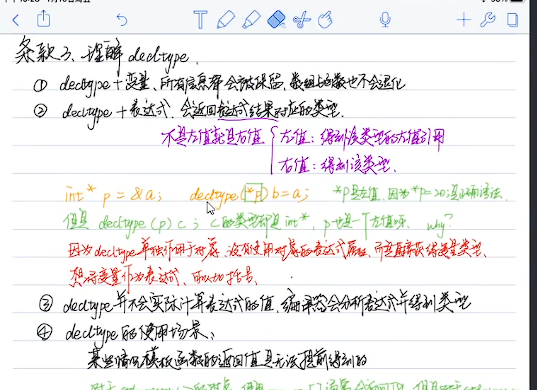 条款3、理解decltype.
① decltype + 变量、所有信息都会被保留, 数组与函数也不会退化
② decltype + 表达式, 会返回表达式结果对应的类型.
不是左值就是右值 { 左值: 得到该类型的左值引用
右值: 得到该类型.
int* p = &a; decltype(*p) b = a; *p是左值, 因为*p=20;是正确语法.
但是 decltype(p) c; c的类型却是int*, p也是一个左值呀, why?
因为decltype单独作用于对象, 没有使用对象的表达式属性, 而是直接获得变量类型.
想将变量作为表达式, 可以加括号.
③ decltype并不会实际计算表达式的值, 编译器会分析表达式并得到类型
④ decltype的使用场景:
某些情况模板函数的返回值是无法提前得到的